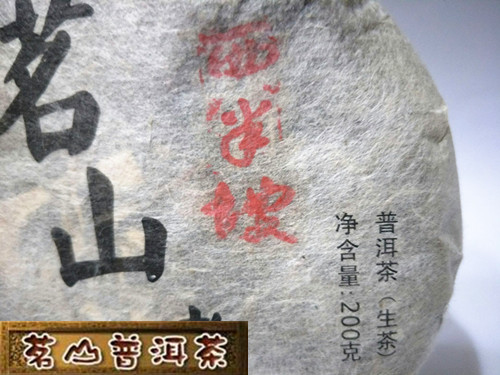 茗山
西半坡
普洱茶（生茶）
净含量：200克
茗山普洱茶